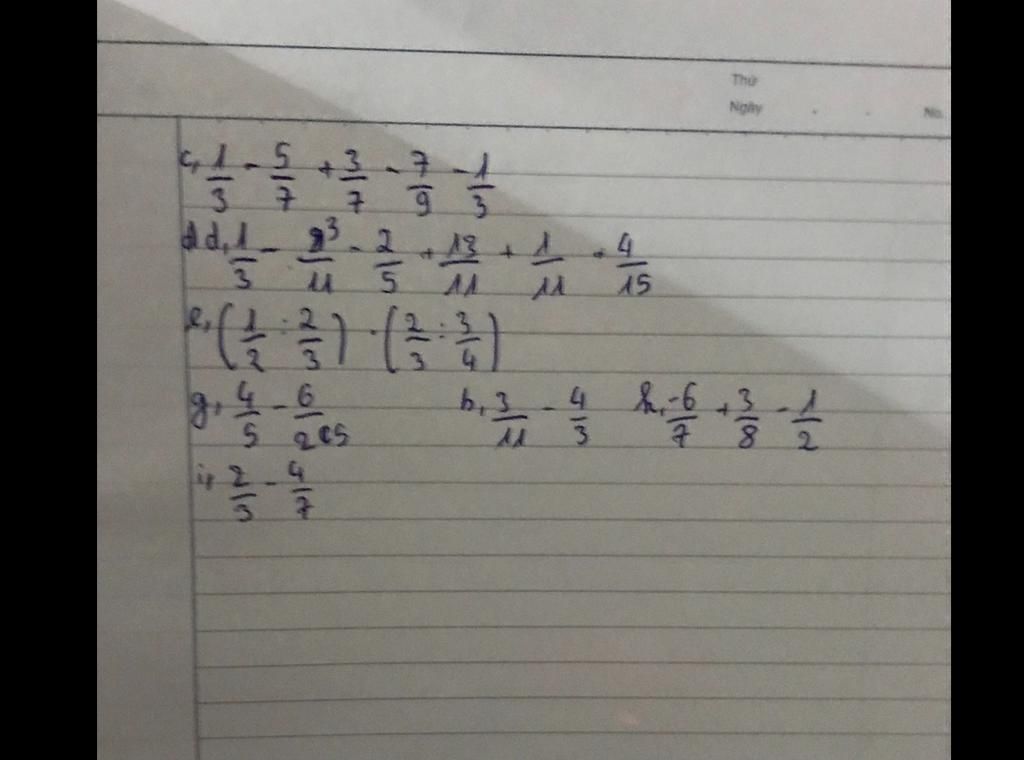 Thứ
Ngày . . No.
c, 1/3 - 5/7 + 3/7 - 7/9 - 1/3
d, 1/3 - 3/11 - 2/5 + 13/11 + 1/11 + 4/15
e, (1/2 : 2/3) . (2/3 : 3/4)
g, 4/5 - 6/25 b, 3/11 - 4/3 h, -6/7 + 3/8 - 1/2
i, 2/3 - 4/7